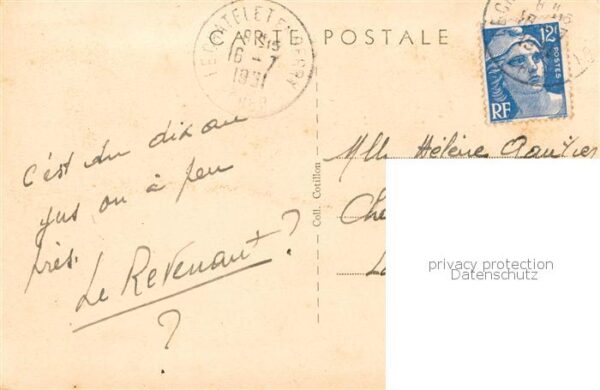 CARTE POSTALE
LE CHATELET EN BERRY
6 - 7
1951
CHER
12F
POSTES
RF
c'est du dix au
jus ou à peu
près.
Le Revenant ?
?
Coll. Cotillon
Mlle Hélène Gautier
Che
La
privacy protection
Datenschutz